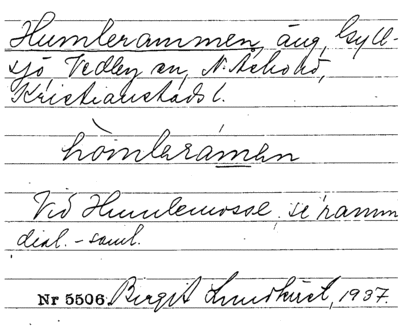 Humlerammen, äng, Gyll-
sjö, Vedby sn, N. Åsbo hd,
Kristianstads l.
hòmlerámen
Vid Humlemosse, se ramm
dial.-saml.
Nr 5506. Birgit Lundkvist, 1937.